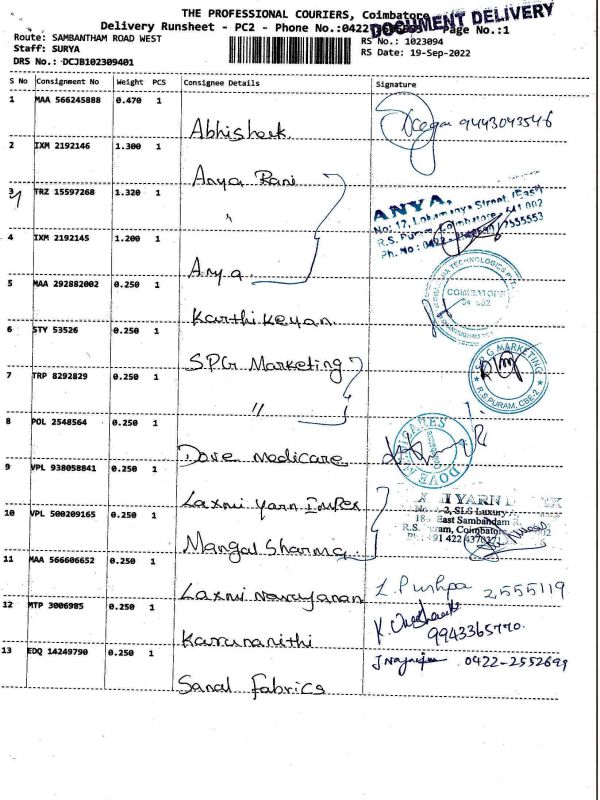 THE PROFESSIONAL COURIERS, Coimbatore
DOCUMENT DELIVERY
Delivery Runsheet - PC2 - Phone No.:0422 Page No.:1
Route: SAMBANTHAM ROAD WEST
RS No.: 1023094
Staff: SURYA
RS Date: 19-Sep-2022
DRS No.: DCJB102309401
S No Consignment No Weight PCS Consignee Details Signature
1 MAA 566245888 0.470 1 Abhisheek 9443043546
2 IXM 2192146 1.300 1 Anya Rani
3 TRZ 15597268 1.320 1 "
ANYA,
No: 12, Lokamanya Street, (East)
R.S. Puram, Coimbatore - 641 002
Ph. No : 0422 - 7555553
4 IXM 2192145 1.200 1 Anya
5 MAA 292882002 0.250 1 Karthikeyan
TECHNOLOGIES PVT.
COIMBATORE
6 STY 53526 0.250 1 S.P.G Marketing
S.P.G MARKETING
R.S.PURAM, CBE-2
7 TRP 8292829 0.250 1 "
8 POL 2548564 0.250 1 Dove Medicare
DOVE MEDICARES
9 VPL 938058841 0.250 1 Laxmi Yarn Impex
YARN
SLS Luxury
East Sambandam
R.S. Puram, Coimbatore
10 VPL 500209165 0.250 1 Mangal Sharma
11 MAA 566606652 0.250 1 Laxmi Narayanan L. Pushpa 2555119
12 MTP 3006985 0.250 1 Karunanithi 9943365770.
13 EDQ 14249790 0.250 1 Sanal Fabrics 0422-2552699